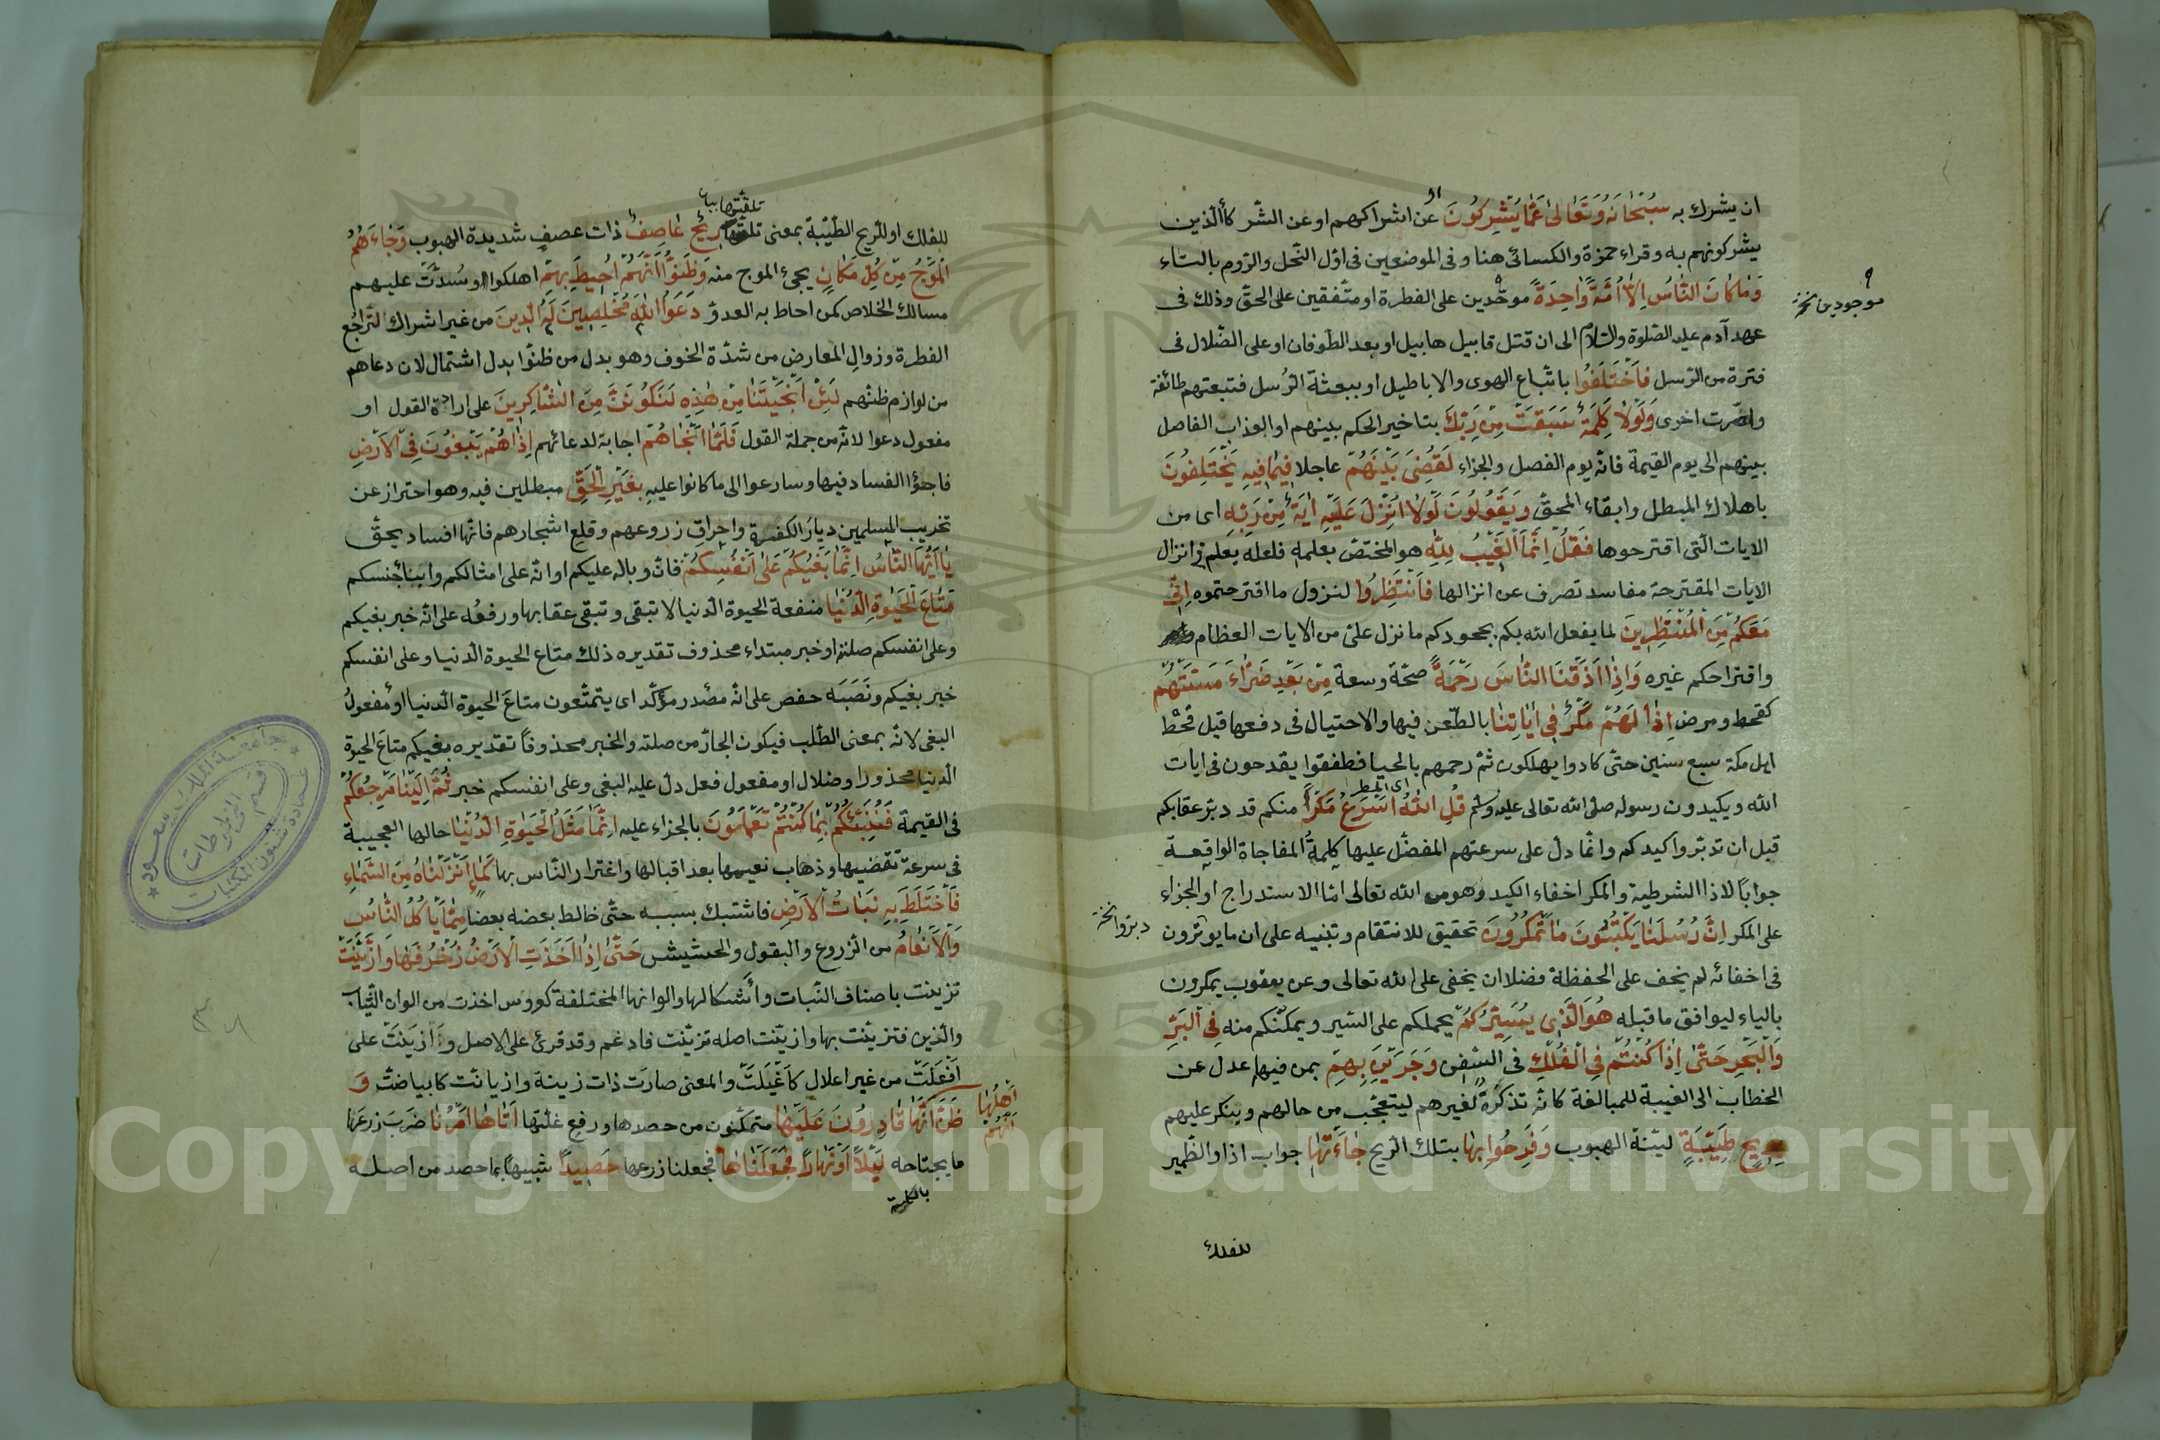 ان يشرك به سُبْحَانَهُ وَتَعَالىٰ عَمَّا يُشْرِكُونَ عن اشراكهم او عن الشركاء الذين
يشركونهم به وقراء حمزة والكسائى هنا وفى الموضعين فى اوّل النّحل والرّوم بالتاء
وَمَا كَانَ النَّاسُ اِلَّا اُمَّةً وَاحِدَةً موحّدين على الفطرة او متّفقين على الحقّ وذلك فى
موجودين نخـ
عهد آدم عليه الصّلوة والسّلام الى ان قتل قابيل هابيل او بعد الطّوفان او على الضّلال فى
فترة من الرّسل فَاخْتَلَفُوا باتّباع الهوى والاباطيل او ببعثة الرّسل فتبعتهم طائفة
واصرّت اخرى وَلَوْلَا كَلِمَةٌ سَبَقَتْ مِنْ رَبِّكَ بتاخير الحكم بينهم او العذاب الفاصل
بينهم الى يوم القيمة فانّه يوم الفصل والجزاء لَقُضِىَ بَيْنَهُمْ عاجلا فِيمَا فِيهِ يَخْتَلِفُونَ
باهلاك المبطل وابقاء المحقّ وَيَقُولُونَ لَوْلَا اُنْزِلَ عَلَيْهِ اٰيَةٌ مِنْ رَبِّهِ اى من
الايات الّتى اقترحوها فَقُلْ اِنَّمَا الْغَيْبُ لِلّٰهِ هو المختصّ بعلمه فلعلّه يعلم فى انزال
الايات المقترحة مفاسد تصرف عن انزالها فَانْتَظِرُوا لنزول ما اقترحتموه اِنِّى
مَعَكُمْ مِنَ الْمُنْتَظِرِينَ لما يفعل الله بكم بجحودكم ما نزل علىّ من الايات العظام
واقتراحكم غيره وَاِذَا اَذَقْنَا النَّاسَ رَحْمَةً صحّة وسعة مِنْ بَعْدِ ضَرَّاءَ مَسَّتْهُمْ
كقحط ومرض اِذَا لَهُمْ مَكْرٌ فِى اٰيَاتِنَا بالطّعن فيها والاحتيال فى دفعها قيل قحط
اهل مكة سبع سنين حتّى كادوا يهلكون ثمّ رحمهم بالحيا فطفقوا يقدحون فى ايات
اى المطر
الله ويكيدون رسوله صلى الله تعالى عليه وسلم قُلِ اللّٰهُ اَسْرَعُ مَكْرًا منكم قد دبّر عقابكم
قبل ان تدبّروا كيدكم وانّما دلّ على سرعتهم المفضّل عليها كلمةُ المفاجاة الواقعة
جوابًا لاذا الشرطية والمكر اخفاء الكيد وهو من الله تعالى امّا الاستدراج او الجزاء
على المكر اِنَّ رُسُلَنَا يَكْتُبُونَ مَا تَمْكُرُونَ تحقيق للانتقام وتنبيه على ان ما يوثرون
دبّروا نخـ
فى اخفائه لم يخف على الحفظة فضلا ان يخفى على الله تعالى وعن يعقوب يمكرون
بالياء ليوافق ما قبله هُوَ الَّذِى يُسَيِّرُكُمْ يحملكم على السّير ويمكّنكم منه فِى الْبَرِّ
وَالْبَحْرِ حَتّٰى اِذَا كُنْتُمْ فِى الْفُلْكِ فى السّفن وَجَرَيْنَ بِهِمْ بمن فيها عدل عن
الخطاب الى الغيبة للمبالغة كانّه تذكرةٌ لغيرهم ليتعجّب من حالهم وينكر عليهم
بِرِيحٍ طَيِّبَةٍ ليّنة الهبوب وَفَرِحُوا بِهَا بتلك الرّيح جَاءَتْهَا جواب اذا والضّمير
للفلك
تلقّتها
للفلك او للرّيح الطّيّبة بمعنى رِيحٌ عَاصِفٌ ذات عصف شديدة الهبوب وَجَاءَهُمُ
الْمَوْجُ مِنْ كُلِّ مَكَانٍ يجئ الموج منه وَظَنُّوا اَنَّهُمْ اُحِيطَ بِهِمْ اهلكوا او سُدّت عليهم
مسالك الخلاص كمن احاط به العدوّ دَعَوُا اللّٰهَ مُخْلِصِينَ لَهُ الدِّينَ من غير اشراك لتراجع
الفطرة وزوال المعارض من شدّة الخوف وهو بدل من ظنّوا بدل اشتمال لان دعاهم
من لوازم ظنّهم لَئِنْ اَنْجَيْتَنَا مِنْ هٰذِهِ لَنَكُونَنَّ مِنَ الشَّاكِرِينَ على ارادة القول او
مفعول دعوا لانّه من جملة القول فَلَمَّا اَنْجَاهُمْ اجابة لدعائهم اِذَا هُمْ يَبْغُونَ فِى الْاَرْضِ
فاجؤا الفساد فيها وسارعوا الى ما كانوا عليه بِغَيْرِ الْحَقِّ مبطلين فيه وهو احتراز عن
تخريب المسلمين ديارَ الكفرة واحراقِ زروعهم وقلعِ اشجارهم فانّها افساد بحقّ
يَا اَيُّهَا النَّاسُ اِنَّمَا بَغْيُكُمْ عَلٰى اَنْفُسِكُمْ فانّ وباله عليكم او انّه على امثالكم وابناء جنسكم
مَتَاعُ الْحَيٰوةِ الدُّنْيَا منفعة الحيوة الدّنيا لا تبقى وتبقى عقابها ورفعُه على انّه خبر بغيكم
وعلى انفسكم صلته او خبر مبتداء محذوف تقديره ذلك متاع الحيوة الدّنيا وعلى انفسكم
خبر بغيكم ونَصَبَه حفص على انّه مصدر مؤكّد اى يتمتّعون متاعَ الحيوة الدّنيا او مفعولُ
البغى لانّه بمعنى الطّلب فيكون الجارّ من صلته والخبر محذوفًا تقديره بغيكم متاعَ الحيوة
الدّنيا محذور او ضلال او مفعول فعل دلّ عليه البغى وعلى انفسكم خبر ثُمَّ اِلَيْنَا مَرْجِعُكُمْ
فى القيمة فَنُنَبِّئُكُمْ بِمَا كُنْتُمْ تَعْمَلُونَ بالجزاء عليه اِنَّمَا مَثَلُ الْحَيٰوةِ الدُّنْيَا حالها العجيبة
فى سرعة تقضّيها وذهاب نعيمها بعد اقبالها واغترار النّاس بها كَمَاءٍ اَنْزَلْنَاهُ مِنَ السَّمَاءِ
فَاخْتَلَطَ بِهِ نَبَاتُ الْاَرْضِ فاشتبك بسببه حتّى خالط بعضه بعضا مِمَّا يَاْكُلُ النَّاسُ
وَالْاَنْعَامُ من الزّروع والبقول والحشيش حَتّٰى اِذَا اَخَذَتِ الْاَرْضُ زُخْرُفَهَا وَازَّيَّنَتْ
تزيّنت باصناف النّبات واشكالها والوانها المختلفة كعروس اخذت من الوان الثّياب
والزّين فتزيّنت بها وازّيّنت اصله تزيّنت فادغم وقد قرئ على الاصل وَاَزْيَنَتْ على
اَفْعَلَتْ من غير اعلال كاَغْيَلَتْ والمعنى صارت ذات زينة وازيانّت كابياضّت وَ
ظَنَّ اَهْلُهَا اَنَّهُمْ قَادِرُونَ عَلَيْهَا متمكّنون من حصدها ورفع غلّتها اَتَاهَا اَمْرُنَا ضَرَبَ زرعَها
ما يجتاحه لَيْلًا اَوْ نَهَارًا فَجَعَلْنَاهَا فجعلنا زرعها حَصِيدًا شبيهًا بما حصد من اصله
بالكلّية
جامعة الملك سعود
عمادة شئون المكتبات
قسم المخطوطات
1957
Copyright © King Saud University